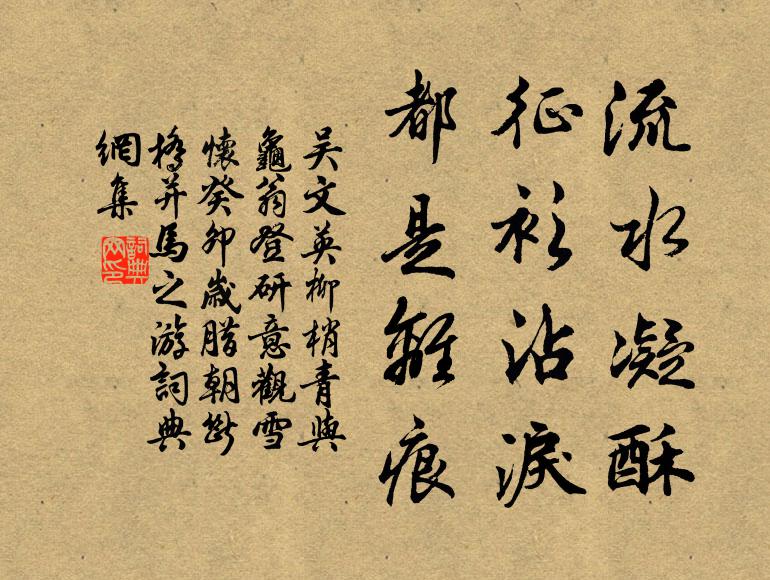 流水凝酥
征衫沾淚
都是離痕
吳文英柳梢青與
龜翁登研意觀雪
懷癸卯歲腊朝斷
橋并馬之游詞典
網集
詞典
网印